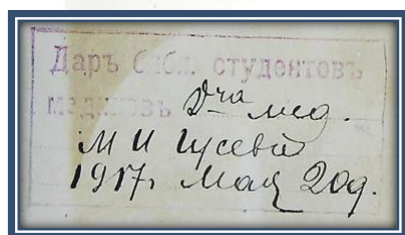 Даръ библ. студентовъ
медиковъ Dra мед.
М И Гусева
1917г Мая 20д.